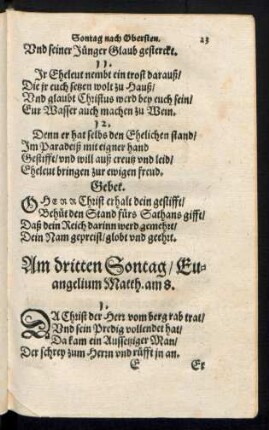 Sontag nach Obersten. 23
Vnd seiner Jünger Glaub gesterckt.
11.
Ir Eheleut nembt ein trost darauß/
Die jr euch setzen wolt zu Hauß/
Vnd glaubt Christus werd bey euch sein/
Eur Wasser auch machen zu Wein.
12.
Denn er hat selbs den Ehelichen stand/
Im Paradeiß mit eigner hand
Gestifft/ vnd will auß creutz vnd leid/
Eheleut bringen zur ewigen freud.
Gebet.
O HERR Christ erhalt dein gestifft/
Behüt den Stand fürs Sathans gifft/
Daß dein Reich darinn werd gemehrt/
Dein Nam gepreist/ globt vnd geehrt.
Am dritten Sontag/ Eu-
angelium Matth. am 8.
1.
DA Christ der Herr vom berg rab trat/
Vnd sein Predig vollendet hat/
Da kam ein Aussetziger Man/
Der schrey zum Herrn vnd rüfft in an.
E Er